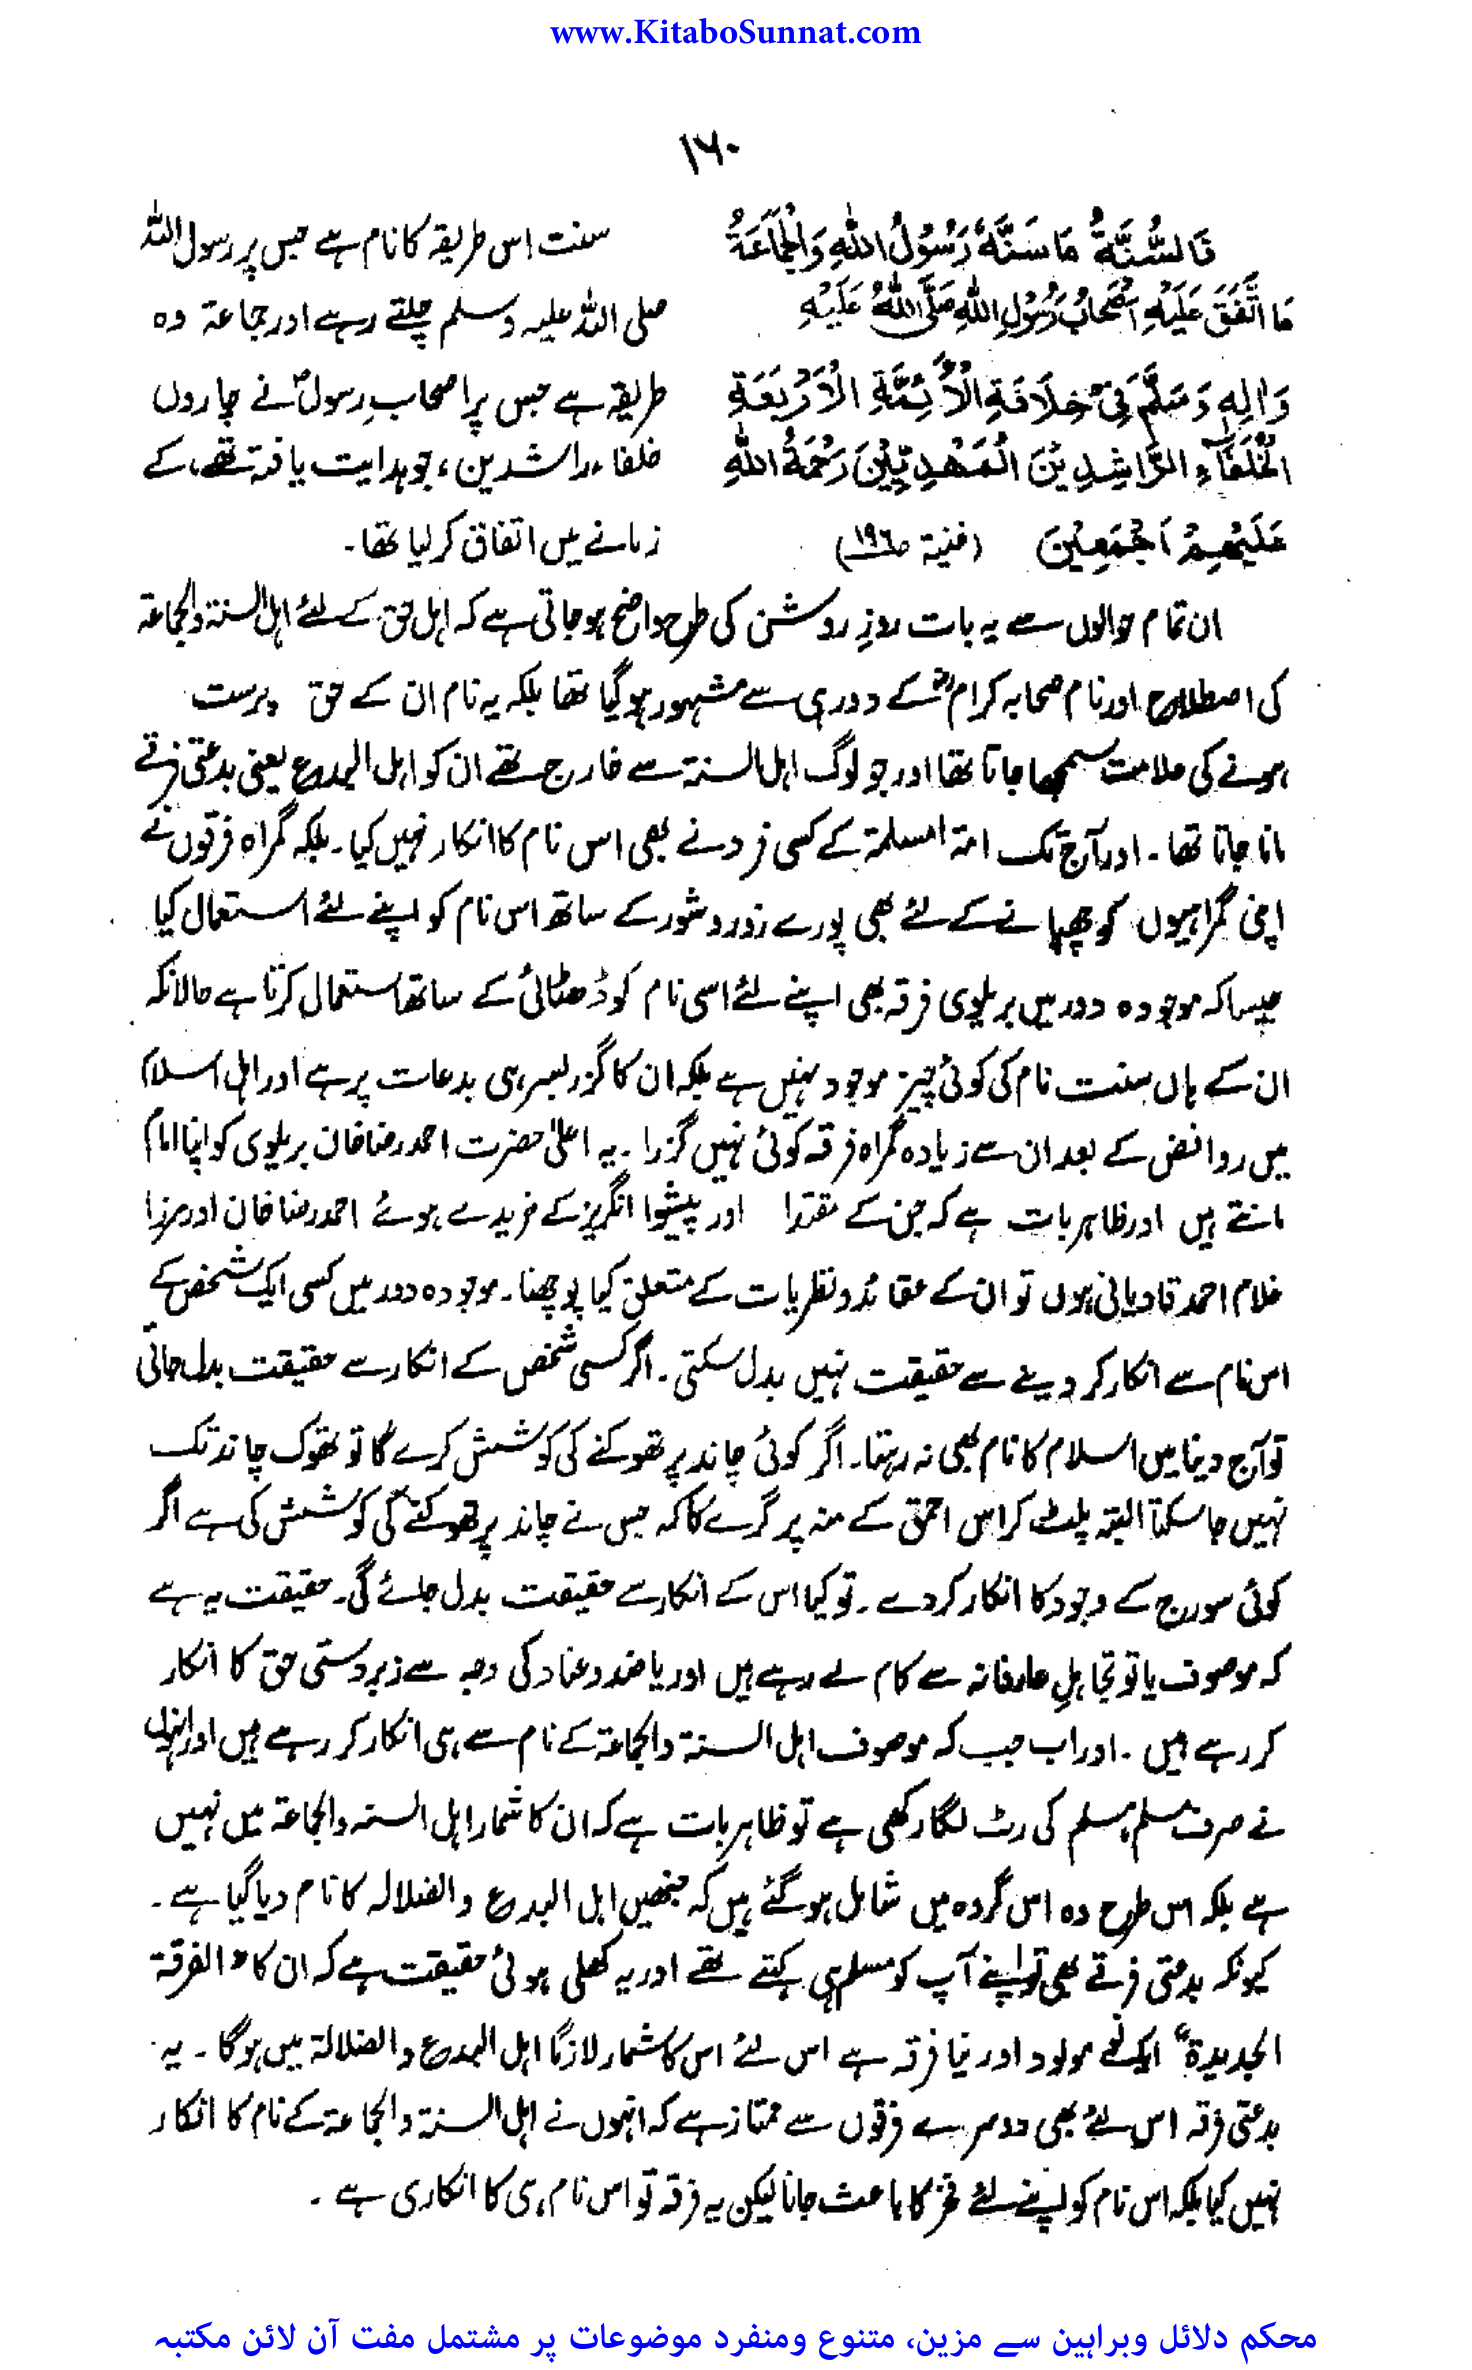 www.KitaboSunnat.com
۱۶۰
فَالسُّنَّةُ مَا سَنَّهُ رَسُوْلُ اللهِ وَالْجَمَاعَةُ
مَا اتَّفَقَ عَلَيْهِ اَصْحَابُ رَسُوْلِ اللهِ صَلَّى اللهُ عَلَيْهِ
وَاٰلِهٖ وَسَلَّمَ فِىْ خِلَافَةِ الْاَئِمَّةِ الْاَرْبَعَةِ
الْخُلَفَآءِ الرَّاشِدِيْنَ الْمَهْدِيِّيْنَ رَحْمَةُ اللهِ
عَلَيْهِمْ اَجْمَعِيْنَ (غنیۃ ص۱۹۶)
سنت اس طریقہ کا نام ہے جس پر رسول اللہ
صلی اللہ علیہ وسلم چلتے رہے اور جماعۃ وہ
طریقہ ہے جس پر اصحابِ رسولؐ نے چاروں
خلفاء راشدین، جو ہدایت یافتہ تھے، کے
زمانے میں اتفاق کر لیا تھا۔
ان تمام حوالوں سے یہ بات روزِ روشن کی طرح واضح ہو جاتی ہے کہ اہل حق کے لئے اہل السنۃ والجماعۃ
کی اصطلاح اور نام صحابہ کرامؓ کے دور ہی سے مشہور ہو گیا تھا بلکہ یہ نام ان کے حق پرست
ہونے کی علامت سمجھا جاتا تھا اور جو لوگ اہل السنۃ سے خارج تھے ان کو اہل البدع یعنی بدعتی فرقے
مانا جاتا تھا۔ اور آج تک امۃ المسلمۃ کے کسی فرد نے بھی اس نام کا انکار نہیں کیا۔ بلکہ گمراہ فرقوں نے
اپنی گمراہیوں کو چھپانے کے لئے بھی پورے زور و شور کے ساتھ اس نام کو اپنے لئے استعمال کیا
جیسا کہ موجودہ دور میں بریلوی فرقہ بھی اپنے لئے اسی نام کو ڈھٹائی کے ساتھ استعمال کرتا ہے حالانکہ
ان کے ہاں سنت نام کی کوئی چیز موجود نہیں ہے بلکہ ان کا گزر بسر ہی بدعات پر ہے اور اہل اسلام
میں روافض کے بعد ان سے زیادہ گمراہ فرقہ کوئی نہیں گزرا۔ یہ اعلیٰ حضرت احمد رضا خان بریلوی کو اپنا امام
مانتے ہیں اور ظاہر بات ہے کہ جن کے مقتدا اور پیشوا انگریز کے خریدے ہوئے احمد رضا خان اور مرزا
غلام احمد قادیانی ہوں تو ان کے عقائد و نظریات کے متعلق کیا پوچھنا۔ موجودہ دور میں کسی ایک شخص کے
اس نام سے انکار کر دینے سے حقیقت نہیں بدل سکتی۔ اگر کسی شخص کے انکار سے حقیقت بدل جاتی
تو آج دینا میں اسلام کا نام بھی نہ رہتا۔ اگر کوئی چاند پر تھوکنے کی کوشش کرے گا تو تھوک چاند تک
نہیں جا سکتا البتہ پلٹ کر اس احمق کے منہ پر گرے گا کہ جس نے چاند پر تھوکنے کی کوشش کی ہے اگر
کوئی سورج کے وجود کا انکار کر دے۔ تو کیا اس کے انکار سے حقیقت بدل جائے گی۔ حقیقت یہ ہے
کہ موصوف یا تو تجاہلِ عارفانہ سے کام لے رہے ہیں اور یا ضد و عناد کی وجہ سے زبردستی حق کا انکار
کر رہے ہیں۔ اور اب جب کہ موصوف اہل السنۃ والجماعۃ کے نام سے ہی انکار کر رہے ہیں اور انہوں
نے صرف مسلم، مسلم کی رٹ لگا رکھی ہے تو ظاہر بات ہے کہ ان کا شمار اہل السنہ والجماعۃ میں نہیں
ہے بلکہ اس طرح وہ اس گروہ میں شامل ہو گئے ہیں کہ جنھیں اہل البدع والضلالہ کا نام دیا گیا ہے۔
کیونکہ بدعتی فرقے بھی تو اپنے آپ کو مسلم ہی کہتے تھے اور یہ کھلی ہوئی حقیقت ہے کہ ان کا "الفرقۃ
الجدیدۃ" ایک نو مولود اور نیا فرقہ ہے اس لئے اس کا شمار لازمًا اہل البدع والضلالۃ میں ہو گا۔ یہ
بدعتی فرقہ اس لئے بھی دوسرے فرقوں سے ممتاز ہے کہ انہوں نے اہل السنۃ والجماعۃ کے نام کا انکار
نہیں کیا بلکہ اس نام کو اپنے لئے فخر کا باعث جانا لیکن یہ فرقہ تو اس نام ہی کا انکاری ہے۔
محکم دلائل وبراہین سے مزین، متنوع ومنفرد موضوعات پر مشتمل مفت آن لائن مکتبہ